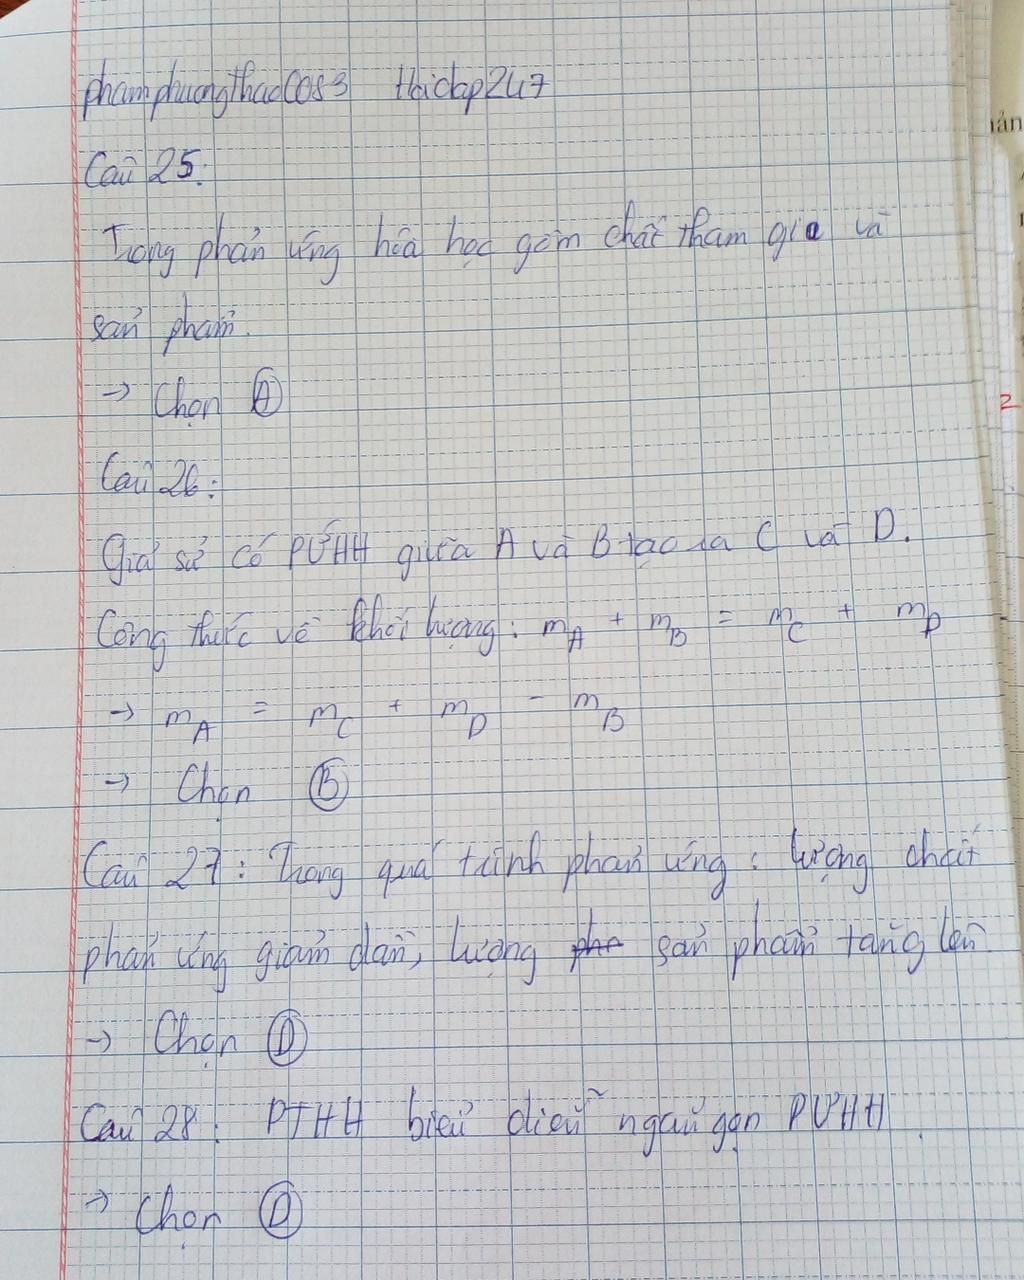 phamphuongthao0083 thidap247
Câu 25:
Trong phản ứng hóa học gồm chất tham gia và
sản phẩm.
→ Chọn A
Câu 26:
Giả sử có PƯHH giữa A và B tạo ra C và D.
Công thức về khối lượng: m_A + m_B = m_C + m_D
→ m_A = m_C + m_D - m_B
→ Chọn B
Câu 27: Trong quá trình phản ứng: lượng chất
phản ứng giảm dần, lượng sản phẩm tăng lên
→ Chọn D
Câu 28: PTHH biểu diễn ngắn gọn PƯHH.
→ Chọn D
ản
2